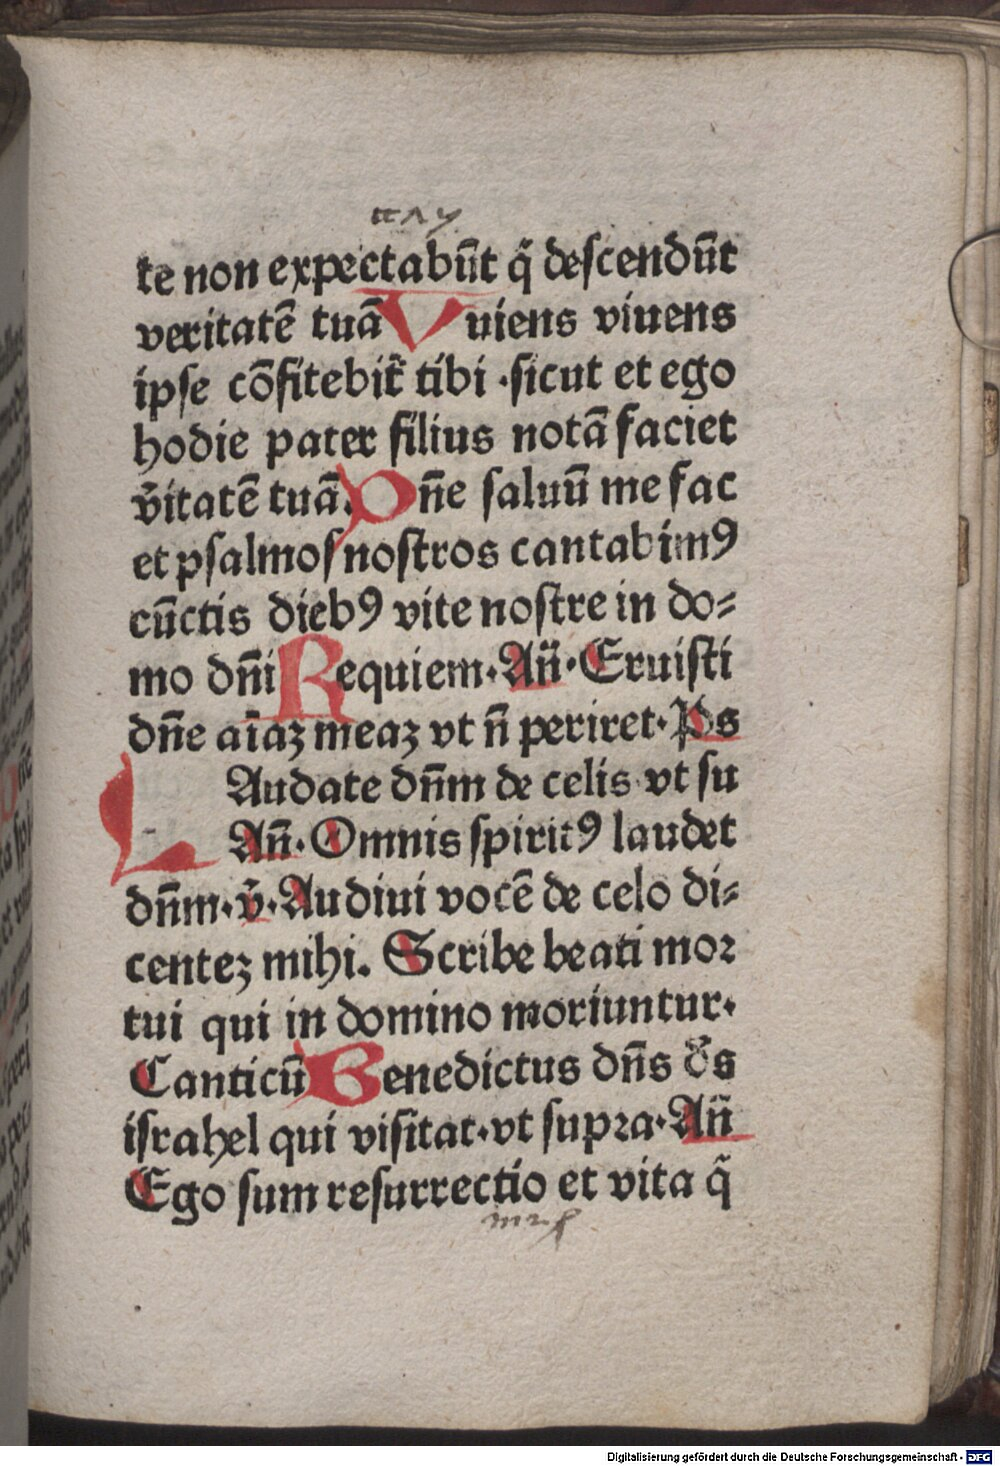 te non expectabūt q̄ descendūt
veritatē tuā Vuiens viuens
ipse cōfitebit᷑ tibi ·sicut et ego
hodie pater filius notā faciet
v̄itatē tuā. Dn̄e saluū me fac
et psalmos nostros cantabimꝰ
cūctis diebꝰ vite nostre in do⸗
mo dn̄i Requiem· An̄· Eruisti
dn̄e aīaꝫ meaꝫ vt n̄ periret· Ps
LAudate dn̄m de celis vt su
An̄· Omnis spiritꝰ laudet
dn̄m· v̄· Audiui vocē de celo di⸗
centeꝫ mihi. Scribe beati moꝛ
tui qui in domino moriuntur·
Canticū Benedictus dn̄s de᷒s
israhel qui visitat· vt supꝛa· An̄
Ego sum resurrectio et vita q̄
Digitalisierung gefördert durch die Deutsche Forschungsgemeinschaft - DFG